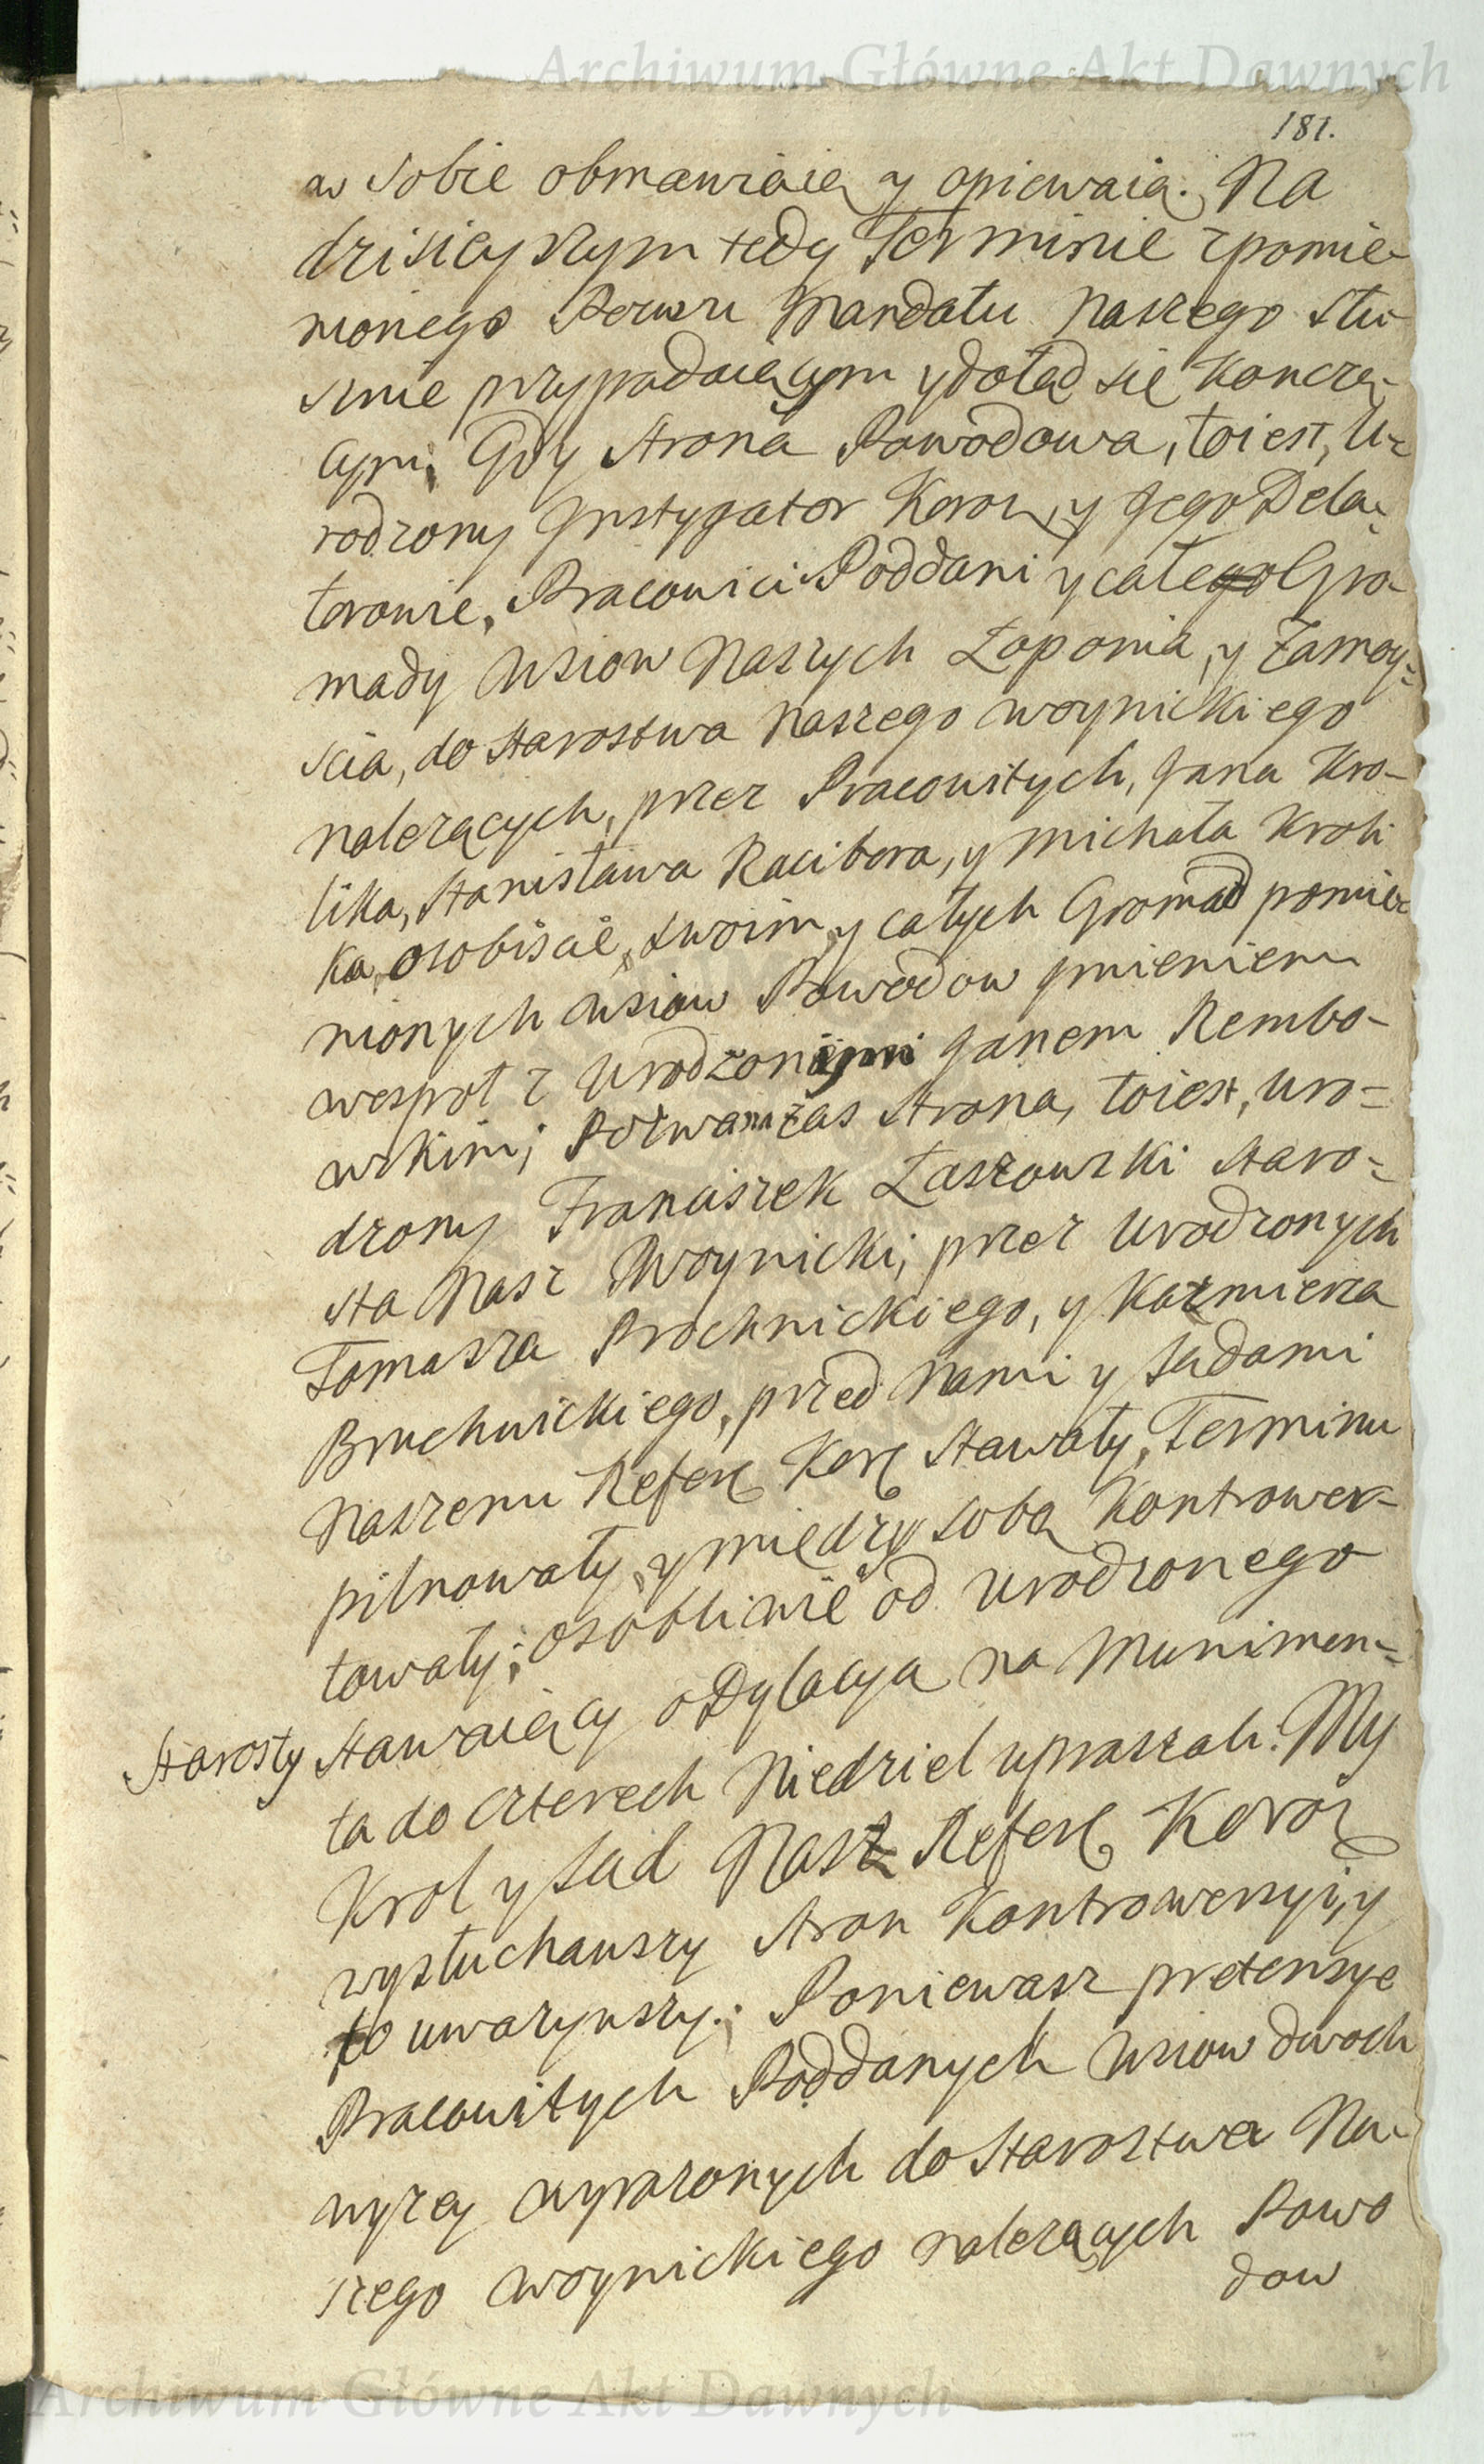 Archiwum Główne Akt Dawnych
181.
w sobie obmawiaią y opiewaią. Na
dzisieyszym tedy Terminie zpomie-
nionego Pozwu Mandatu Naszego słu-
sznie przypadaiącym y dotąd się konczą-
cym; Gdy strona Powodowa, toiest, U-
rodzony Jnstygator Koron, y Jego Dela-
torowie, Pracowici Poddani y całego Gro-
mady Wsiow Naszych Łoponia, y Zamoy-
scia, do Starostwa Naszego Woynickiego
nalezących, przez Pracowitych, Jana Kro-
lika, Stanisława Racibora, y Michała Kroli
ka, osobiscie, swoim, y całych Gromad pomie-
nionych Wsiow Powodow Jmieniem
wespoł z Urodzonymi Janem Rembo-
wskim; Pozwana zas strona, toiest, Uro-
dzony Franciszek Łaszowski Staro-
sta Nasz Woynicki; przez Urodzonych
Tomasza Prochnickiego, y Kazmierza
Bruchnickiego, przed Nami y Sądami
Naszemi Refer Kor stawały, Terminu
pilnowały, y między sobą Kontrower-
towały; osobliwie od Urodzonego
Starosty stawaiący o Dylacyą na Munimen-
ta do czterech Niedziel upraszali. My
Krol y Sąd Nasz Refer Koron
wysłuchawszy stron Kontrowersyi, y
to uwazywszy.; Poniewasz pretensye
Pracowitych Poddanych Wsiow dwoch
wyzey wyrazonych do Starostwa Na-
szego Woynickiego nalezących Powo
dow
Archiwum Główne Akt Dawnych